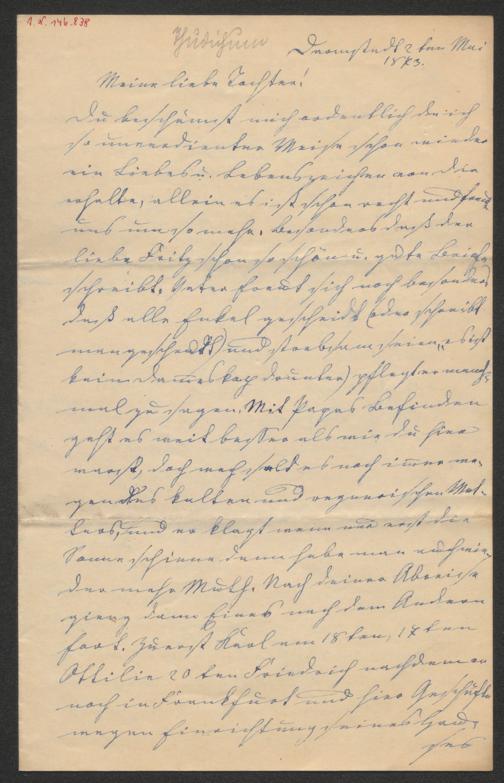 I. N. 146.838
Thudichum
Darmstadt 2ten Mai
1873.
Meine liebe Tochter!
Du beschämst mich ordentlich da ich
so unverdienter Weise schon wieder
ein Liebes u. Lebenszeichen von Dir
erhalte, allein es ist schon recht und freut
uns um so mehr. Besonders daß der
liebe Fritz schon so schön u. gute Briefe
schreibt. Vater freut sich noch besonders
daß alle Enkel gescheidt (oder schreibt
man gescheut) und strebsam seien, "es ist
kein drunter) pflegt er manch-
mal zu sagen. Mit Papas Befinden
geht es weit besser als wie du hier
warst, doch noch immer we-
gen des kalten und regnerischen Wet-
ters, und er klagt wenn nur erst die
Sonne schiene dann habe man auch wie-
der mehr Muth. Nach deiner Abreise
gieng dann Eines nach dem Andern
fort. Zuerst Karl am 18ten, 17ten
Ottilie 20ten Friedrich nachdem er
noch in Frankfurt und hier Geschäfte
wegen Einrichtung seines Hau-
ses